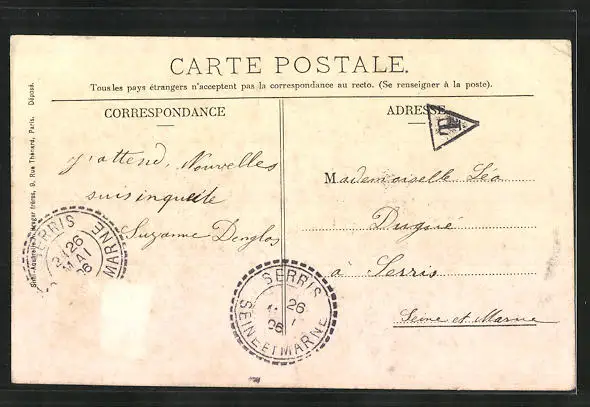 CARTE POSTALE.
Tous les pays étrangers n'acceptent pas la correspondance au recto. (Se renseigner à la poste).
CORRESPONDANCE
ADRESSE
T
J'attend, Nouvelles
suis inquiete
Suzanne
Mademoiselle Léa
Dugué
à Serris
Seine et Marne
SERRIS
26
MAI
06
MARNE
SERRIS
26
06
SEINE ET MARNE
frères, 9, Rue Thénard, Paris. Déposé.